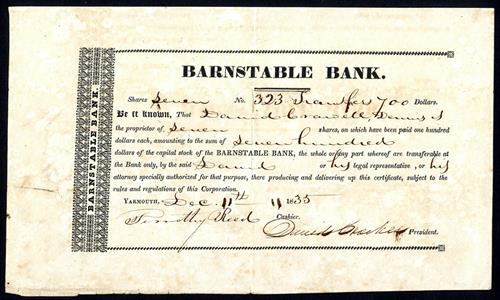 BARNSTABLE BANK.
BARNSTABLE BANK.
Shares Seven No. 323 Transfer 700 Dollars.
Be it known, That David Crowell Dennis is
the proprietor of Seven shares, on which have been paid one hundred
dollars each, amounting to the sum of Seven hundred
dollars of the capital stock of the BARNSTABLE BANK, the whole or any part whereof are transferable at
the Bank only, by the said David or his legal representative, or his
attorney specially authorized for that purpose, there producing and delivering up this certificate, subject to the
rules and regulations of this Corporation.
YARMOUTH, Dec. 11th 1835
Timothy Reed Cashier.
David Crocker President.